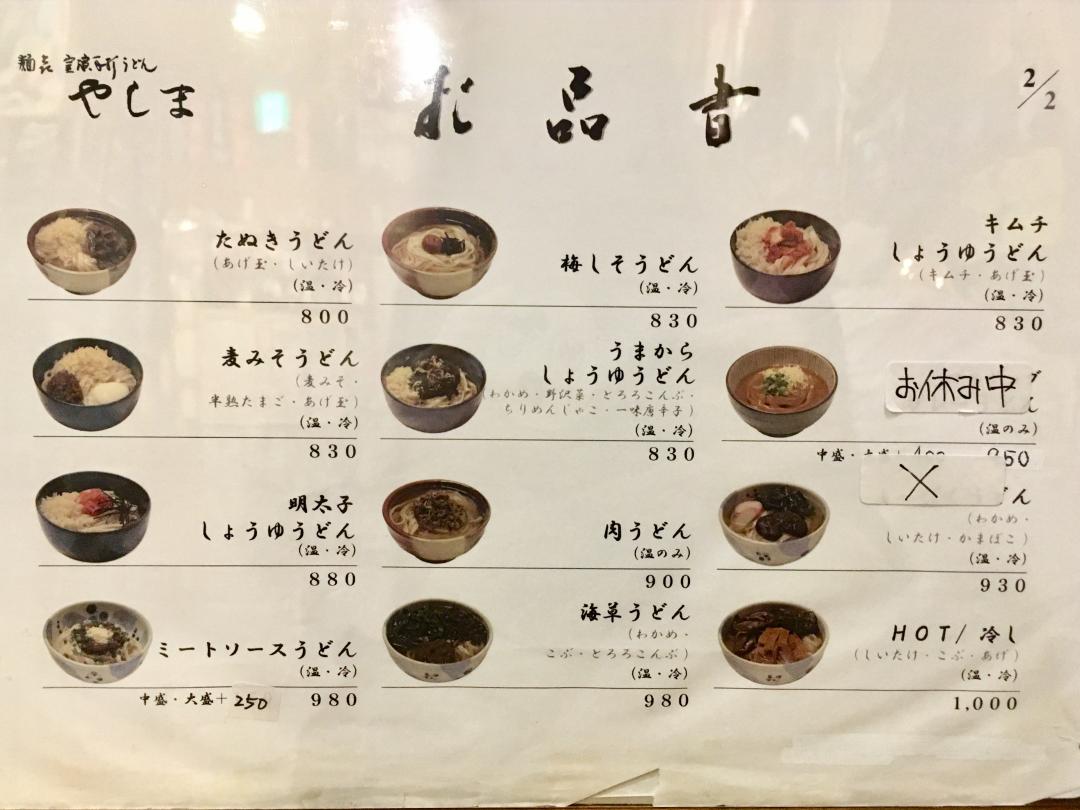 やしま
お品書
2/2
たぬきうどん
(あげ玉・しいたけ)
(温・冷)
800
梅しそうどん
(温・冷)
830
キムチ
しょうゆうどん
(キムチ・あげ玉)
(温・冷)
830
麦みそうどん
(麦みそ・
半熟たまご・あげ玉)
(温・冷)
830
うまから
しょうゆうどん
(わかめ・野沢菜・とろろこんぶ・
ちりめんじゃこ・一味唐辛子)
(温・冷)
830
お休み中
(温のみ)
中盛・大盛+
明太子
しょうゆうどん
(温・冷)
880
肉うどん
(温のみ)
900
×
ん
(わかめ・
しいたけ・かまぼこ)
(温・冷)
930
ミートソースうどん
(温・冷)
中盛・大盛+250 980
海草うどん
(わかめ・
こぶ・とろろこんぶ)
(温・冷)
980
HOT/冷し
(しいたけ・こぶ・あげ)
(温・冷)
1,000